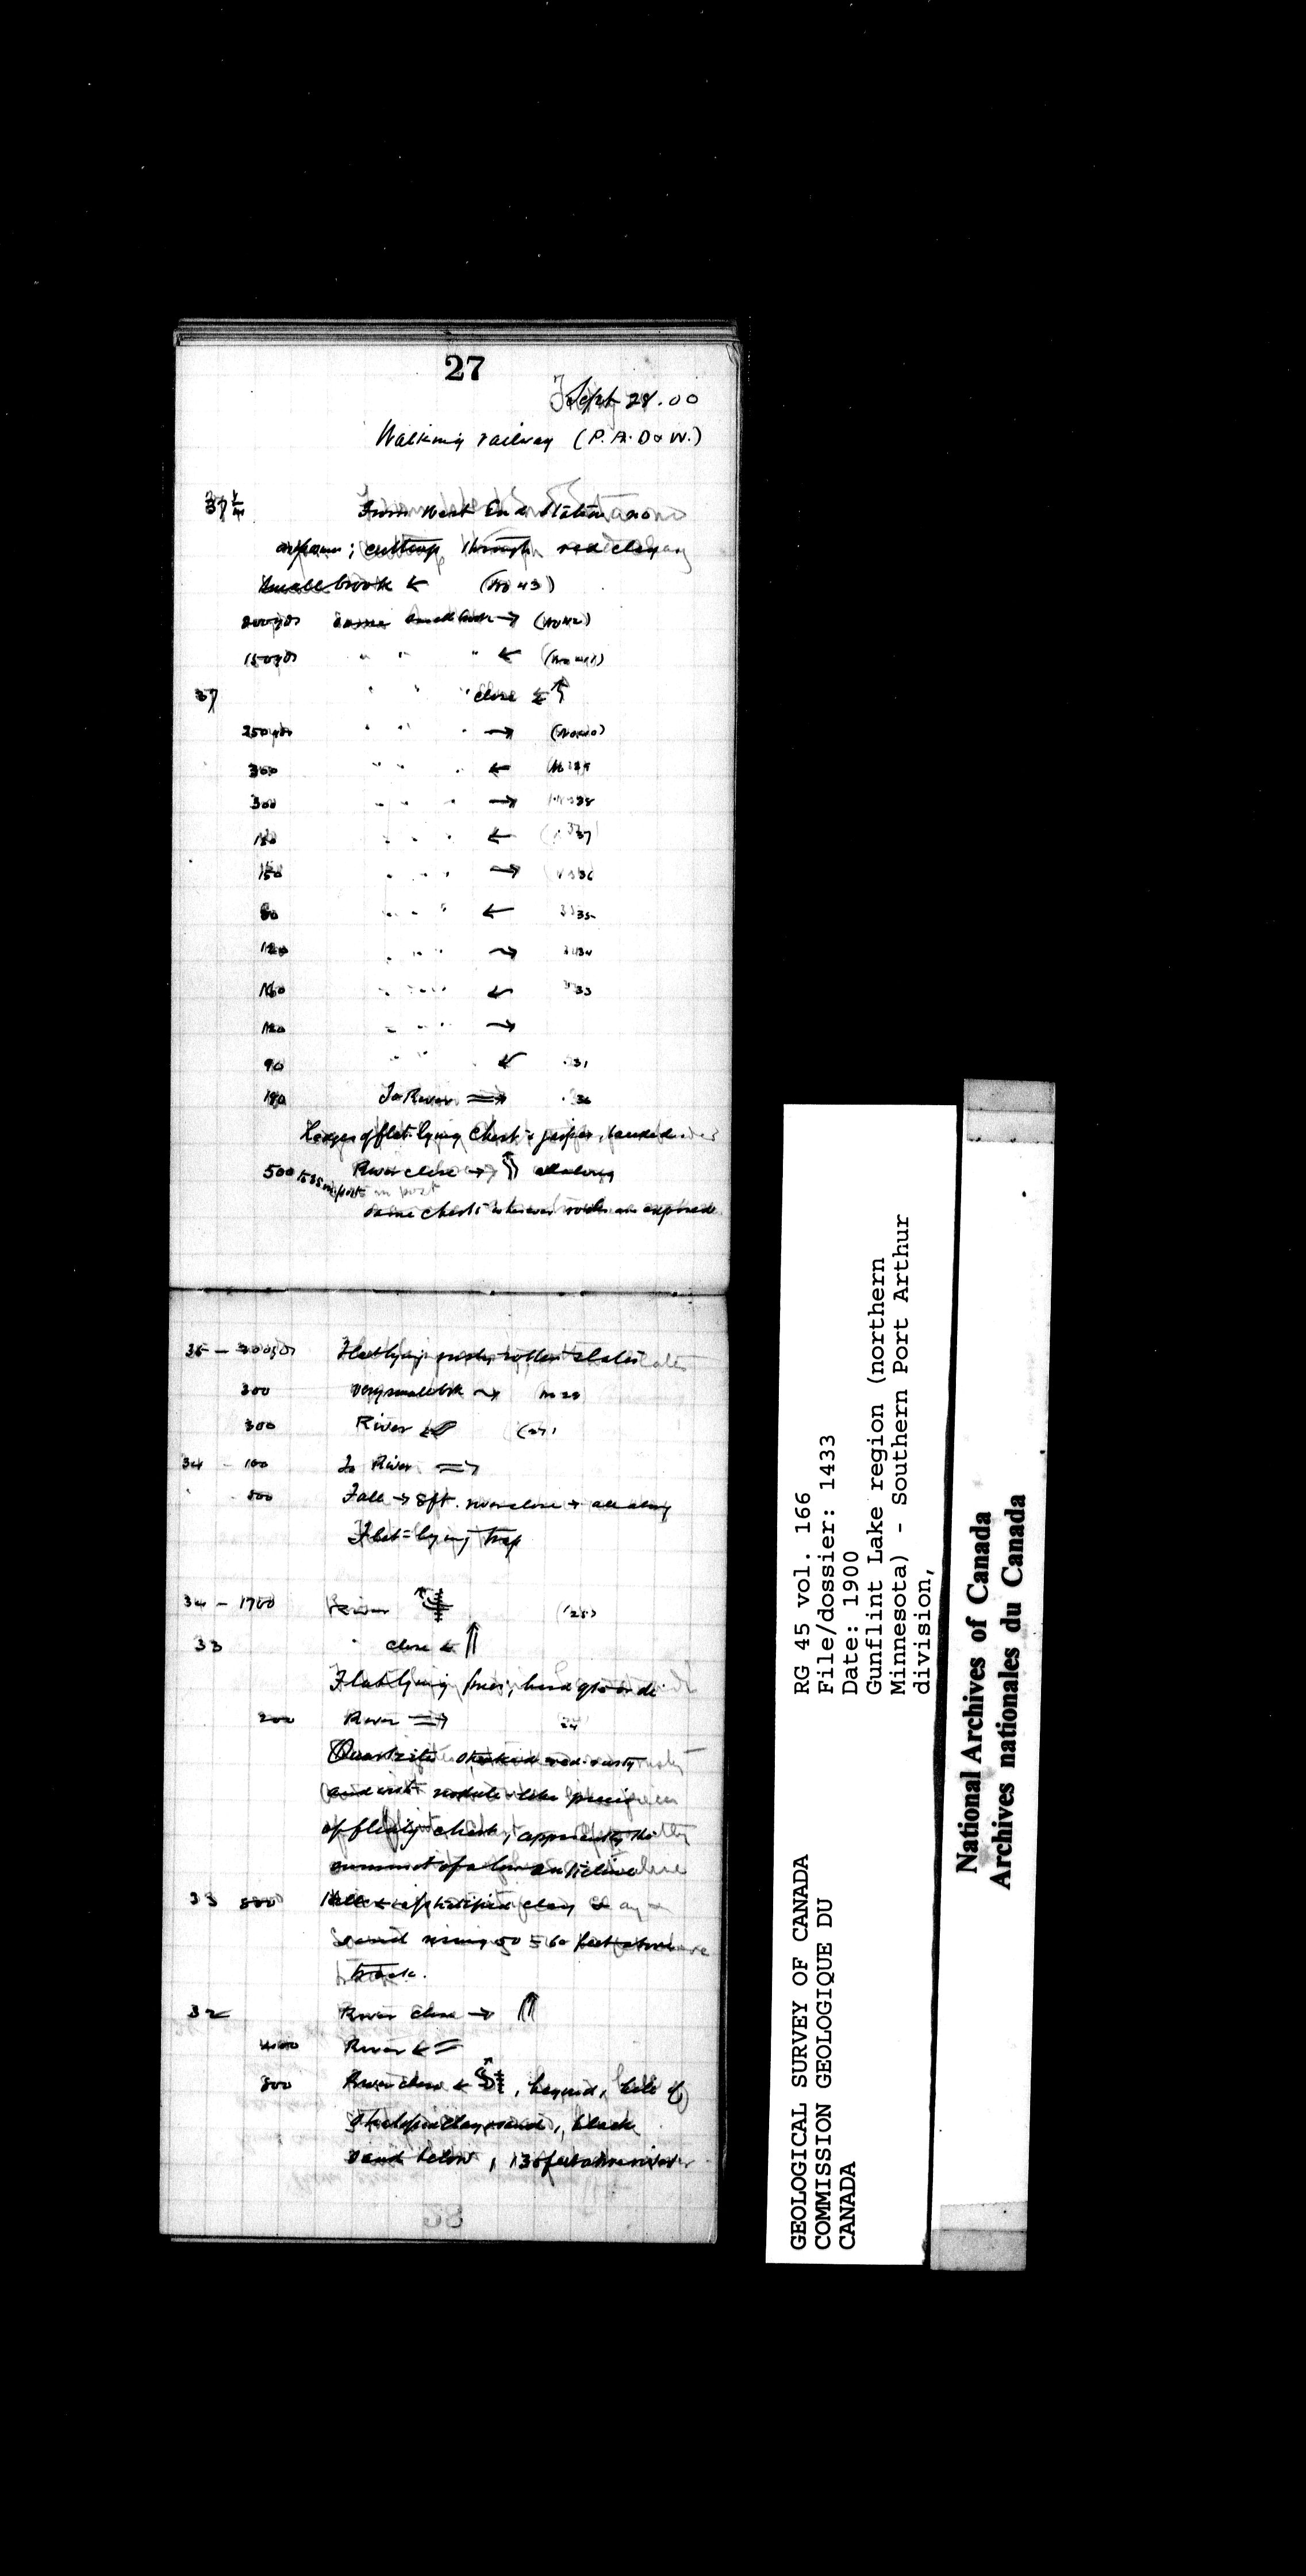 27
Sept 28.00
Walking railway (P.A.D & W.)
37 1/4 From West End Station no
; cuttings through red clay
Small brook ← (No 43)
200 yds same small brook → (No 42)
150 yds " " " ← (No 41)
37 " " " close ← ↑
250 yds " " " → (No 40)
300 " " " ← No 39
300 " " " → 38
" " " ← 37
150 " " " → 36
80 " " " ← 35
120 " " " → 34
160 " " " ← 33
120 " " " →
90 " " " ← 31
To River ⇒
Ledges of flat-lying chert & jasper, banded
500 to 35 m post River close → ⇑ all along
same cherts wherever rocks are exposed
35 – 300 yds Flat lying rusty rotten slates
300 very small brk → No 28
300 River ⇐ (27)
34 – 100 To River ⇒
500 Fall → 8 ft. river close → all along
Flat-lying trap
34 – 1700 River (25)
33 " close ← ⇑
Flat lying
200 River ⇒ 24
Quartzite red rusty
and with nodule-like pieces
of flinty chert, apparently the
summit of a low anticline
33 800 of stratified clay &
sand rising 50 – 60 feet above
track.
32 River close → ⇑
400 River ⇐
800 River close ← , beyond, hill of
clay & sand, black
sand below, 130 feet above river
GEOLOGICAL SURVEY OF CANADA
COMMISSION GEOLOGIQUE DU
CANADA
RG 45 vol. 166
File/dossier: 1433
Date: 1900
Gunflint Lake region (northern
Minnesota) - Southern Port Arthur
division,
National Archives of Canada
Archives nationales du Canada